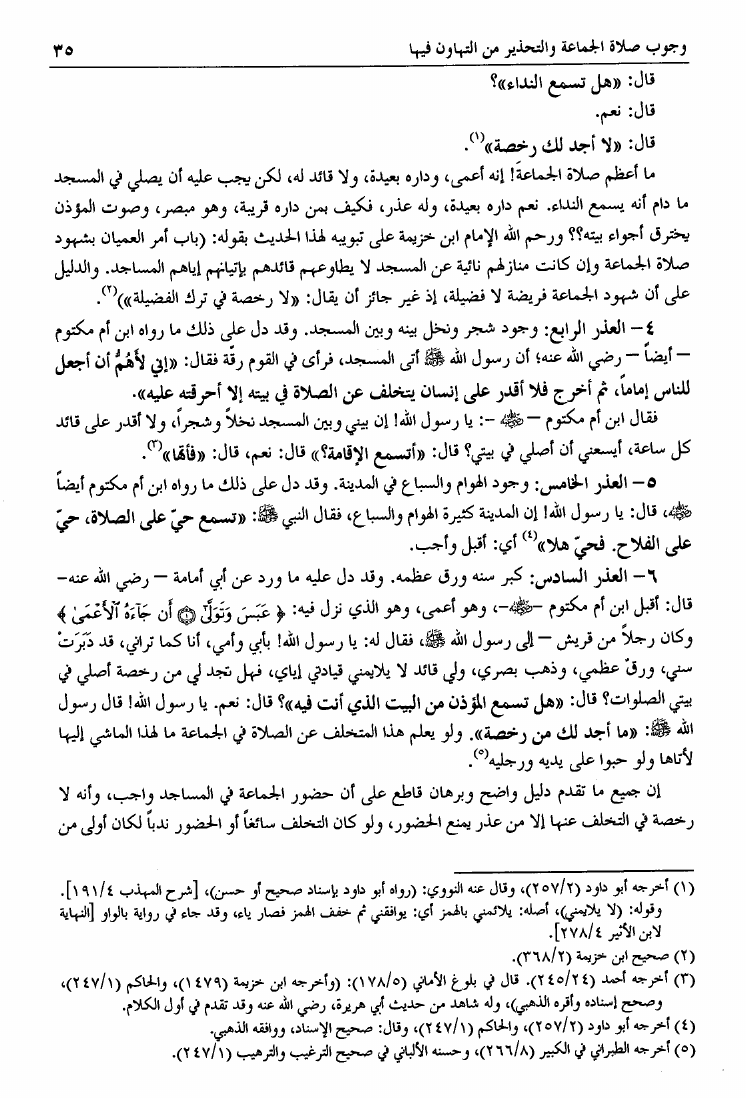 وجوب صلاة الجماعة والتحذير من التهاون فيها ٣٥
قال: «هل تسمع النداء»؟
قال: نعم.
قال: «لا أجد لك رخصة»(١).
ما أعظم صلاة الجماعة! إنه أعمى، وداره بعيدة، ولا قائد له، لكن يجب عليه أن يصلي في المسجد
ما دام أنه يسمع النداء. نعم داره بعيدة، وله عذر، فكيف بمن داره قريبة، وهو مبصر، وصوت المؤذن
يخترق أجواء بيته؟؟ ورحم الله الإمام ابن خزيمة على تبويبه لهذا الحديث بقوله: (باب أمر العميان بشهود
صلاة الجماعة وإن كانت منازلهم نائية عن المسجد لا يطاوعهم قائدهم بإتيانهم إياهم المساجد. والدليل
على أن شهود الجماعة فريضة لا فضيلة، إذ غير جائز أن يقال: «لا رخصة في ترك الفضيلة»)(٢).
٤– العذر الرابع: وجود شجر ونخل بينه وبين المسجد. وقد دل على ذلك ما رواه ابن أم مكتوم
– أيضاً – رضي الله عنه؛ أن رسول الله ﷺ أتى المسجد، فرأى في القوم رقّة فقال: «إني لأهُمُّ أن أجعل
للناس إماماً، ثم أخرج فلا أقدر على إنسان يتخلف عن الصلاة في بيته إلا أحرقته عليه».
فقال ابن أم مكتوم – رضي الله عنه –: يا رسول الله! إن بيني وبين المسجد نخلاً وشجراً، ولا أقدر على قائد
كل ساعة، أيسعني أن أصلي في بيتي؟ قال: «أتسمع الإقامة؟» قال: نعم، قال: «فأتها»(٣).
٥– العذر الخامس: وجود الهوام والسباع في المدينة. وقد دل على ذلك ما رواه ابن أم مكتوم أيضاً
رضي الله عنه، قال: يا رسول الله! إن المدينة كثيرة الهوام والسباع، فقال النبي ﷺ: «تسمع حيّ على الصلاة، حيّ
على الفلاح. فحيّ هلا»(٤) أي: أقبل وأجب.
٦– العذر السادس: كبر سنه ورق عظمه. وقد دل عليه ما ورد عن أبي أمامة – رضي الله عنه–
قال: أقبل ابن أم مكتوم –رضي الله عنه–، وهو أعمى، وهو الذي نزل فيه: ﴿ عَبَسَ وَتَوَلَّىٰٓ ۝١ أَن جَآءَهُ ٱلْأَعْمَىٰ ﴾
وكان رجلاً من قريش – إلى رسول الله ﷺ، فقال له: يا رسول الله! بأبي وأمي، أنا كما تراني، قد دَبَرَتْ
سني، ورقّ عظمي، وذهب بصري، ولي قائد لا يلايمني قيادتي إياي، فهل تجد لي من رخصة أصلي في
بيتي الصلوات؟ قال: «هل تسمع المؤذن من البيت الذي أنت فيه»؟ قال: نعم. يا رسول الله! قال رسول
الله ﷺ: «ما أجد لك من رخصة». ولو يعلم هذا المتخلف عن الصلاة في الجماعة ما لهذا الماشي إليها
لأتاها ولو حبوا على يديه ورجليه(٥).
إن جميع ما تقدم دليل واضح وبرهان قاطع على أن حضور الجماعة في المساجد واجب، وأنه لا
رخصة في التخلف عنها إلا من عذر يمنع الحضور، ولو كان التخلف سائغاً أو الحضور ندباً لكان أولى من
(١) أخرجه أبو داود (٢٥٧/٢)، وقال عنه النووي: (رواه أبو داود بإسناد صحيح أو حسن)، [شرح المهذب ١٩١/٤].
وقوله: (لا يلايمني)، أصله: يلائمني بالهمز أي: يوافقني ثم خفف الهمز فصار ياء، وقد جاء في رواية بالواو [النهاية
لابن الأثير ٢٧٨/٤].
(٢) صحيح ابن خزيمة (٣٦٨/٢).
(٣) أخرجه أحمد (٢٤٥/٢٤). قال في بلوغ الأماني (١٧٨/٥): (وأخرجه ابن خزيمة (١٤٧٩)، والحاكم (٢٤٧/١)،
وصحح إسناده وأقره الذهبي)، وله شاهد من حديث أبي هريرة، رضي الله عنه وقد تقدم في أول الكلام.
(٤) أخرجه أبو داود (٢٥٧/٢)، والحاكم (٢٤٧/١)، وقال: صحيح الإسناد، ووافقه الذهبي.
(٥) أخرجه الطبراني في الكبير (٢٦٦/٨)، وحسنه الألباني في صحيح الترغيب والترهيب (٢٤٧/١).